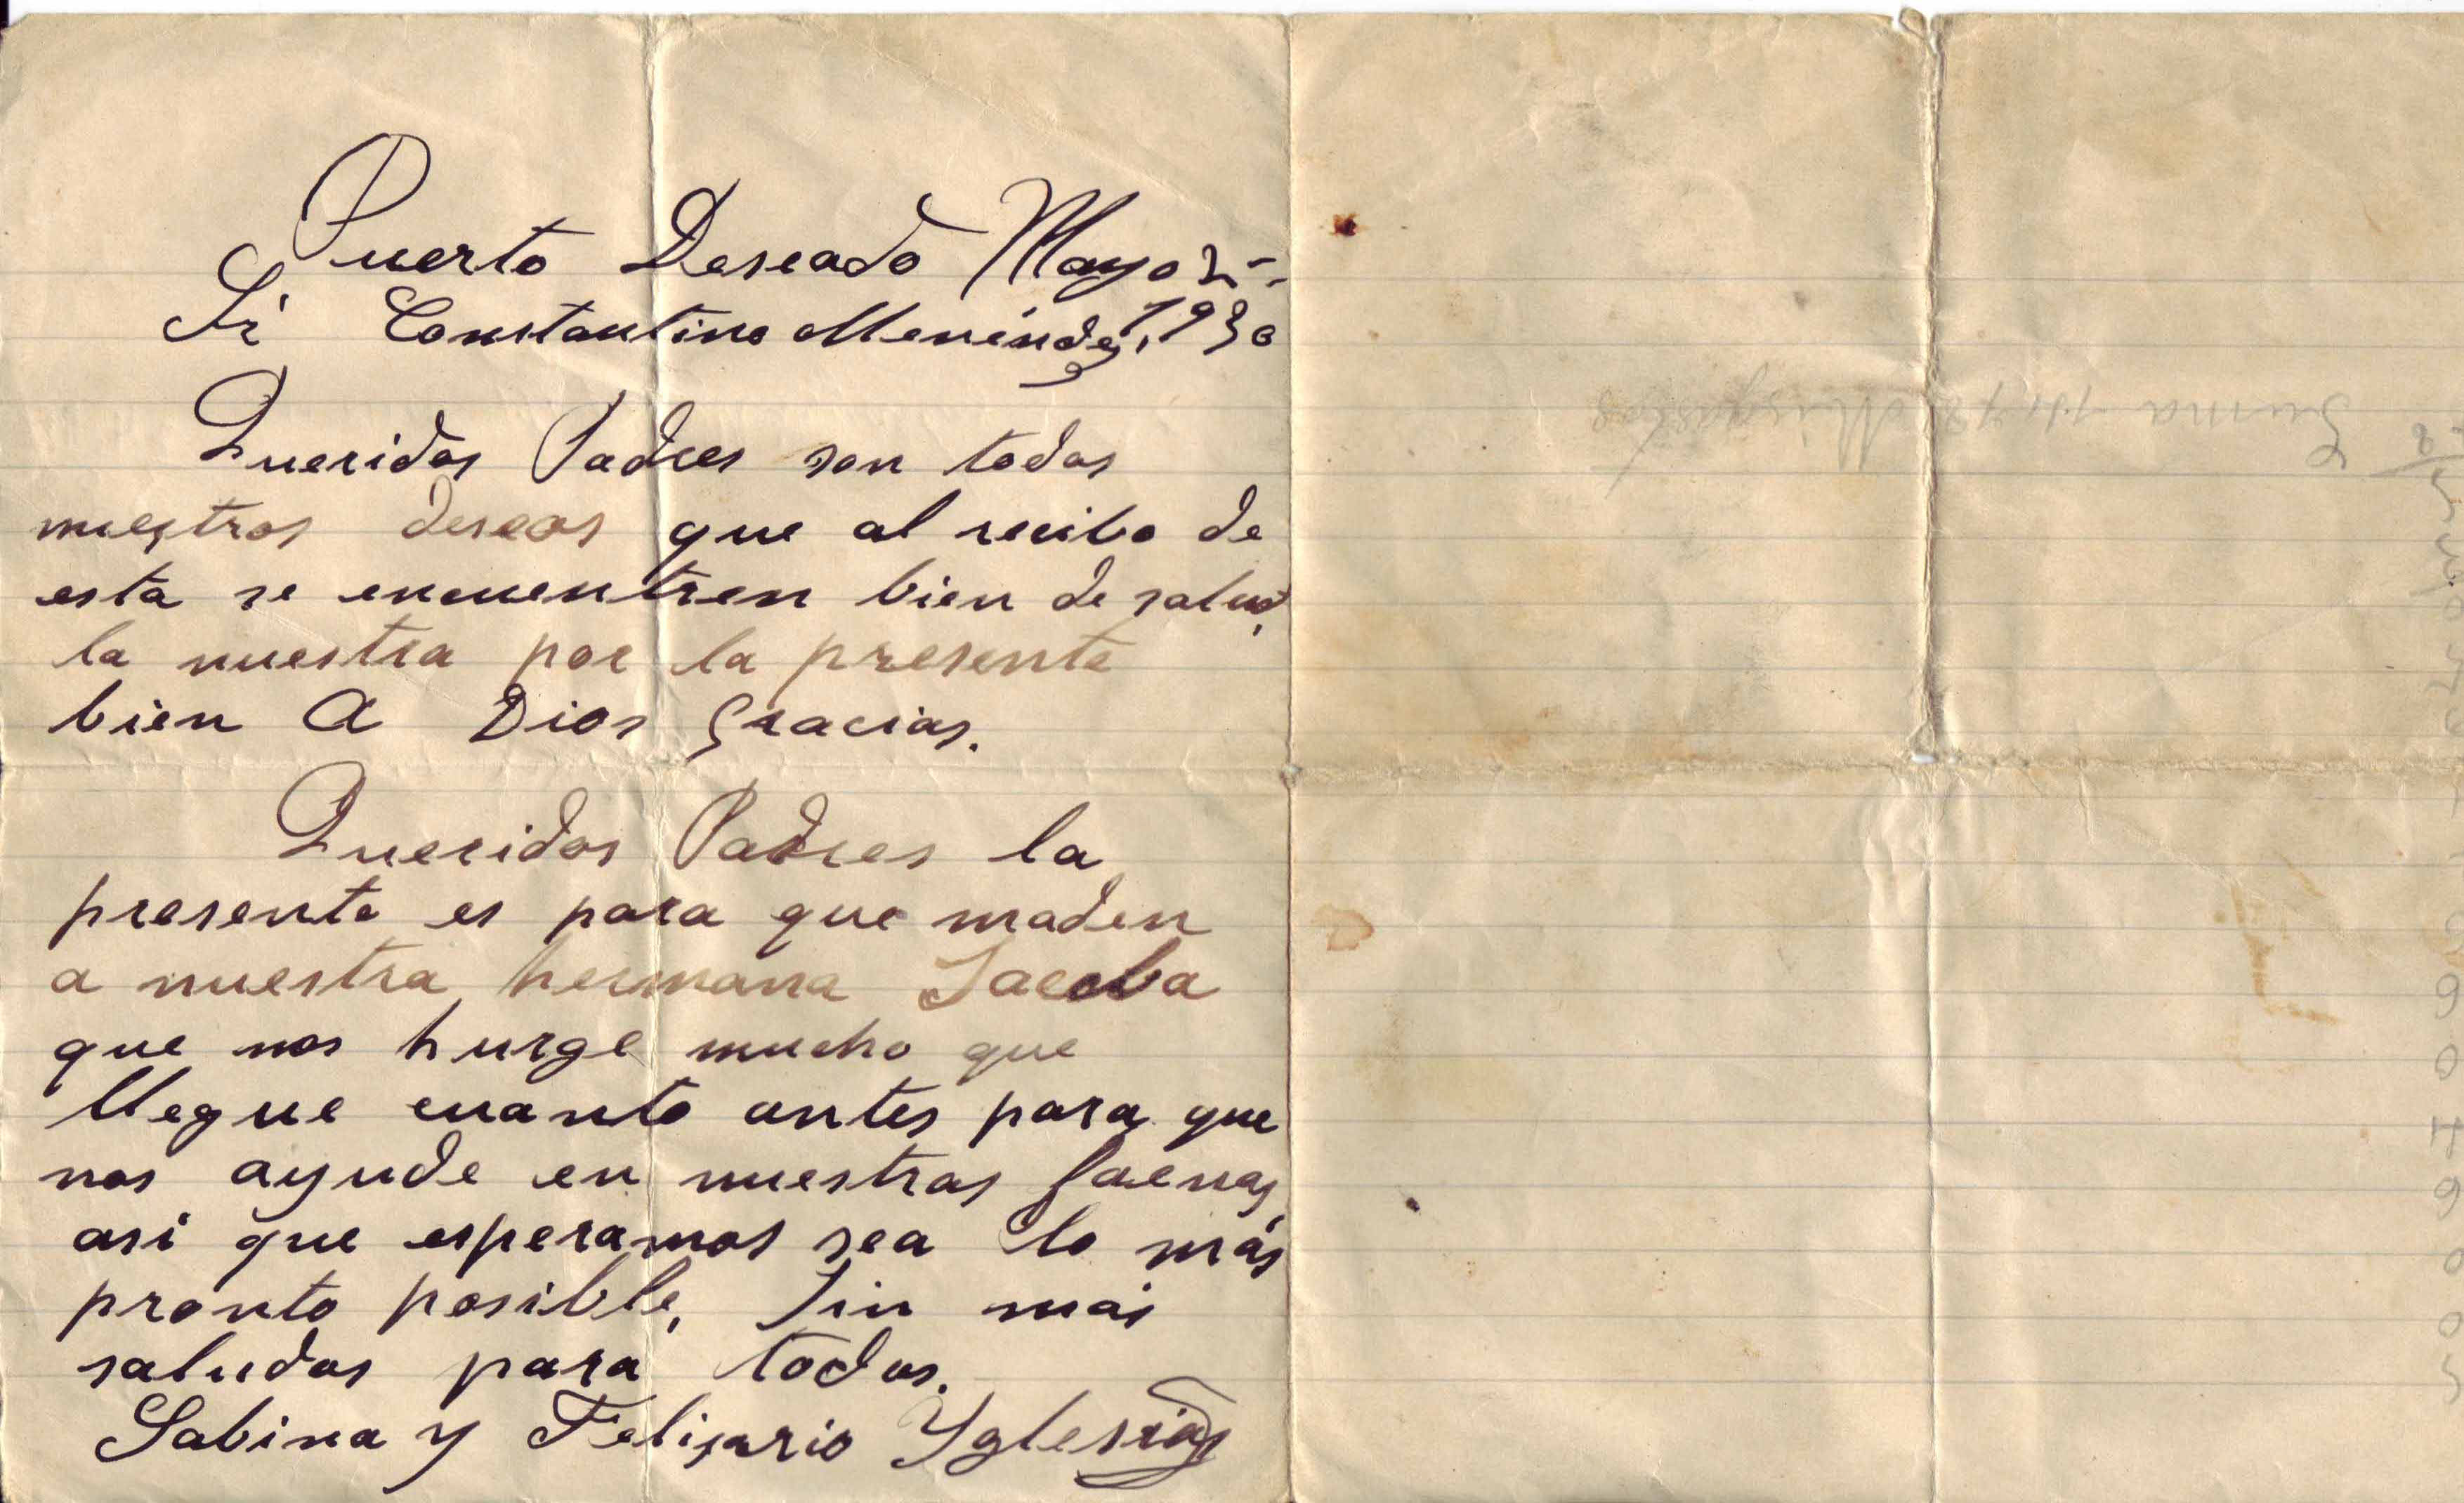 Puerto Deseado Mayo 2-
1930
Sr Constantino Menéndez,
Queridos Padres son todos
nuestros deseos que al recibo de
esta se encuentren bien de salud,
la nuestra por la presente
bien A Dios Gracias.
Queridos Padres la
presente es para que maden
a nuestra hermana Jacoba
que nos hurge mucho que
llegue cuanto antes para que
nos ayude en nuestras faenas,
asi que esperamos sea lo más
pronto posible, Sin más
saludos para todos.
Sabina y Felisario Yglesias
Suma